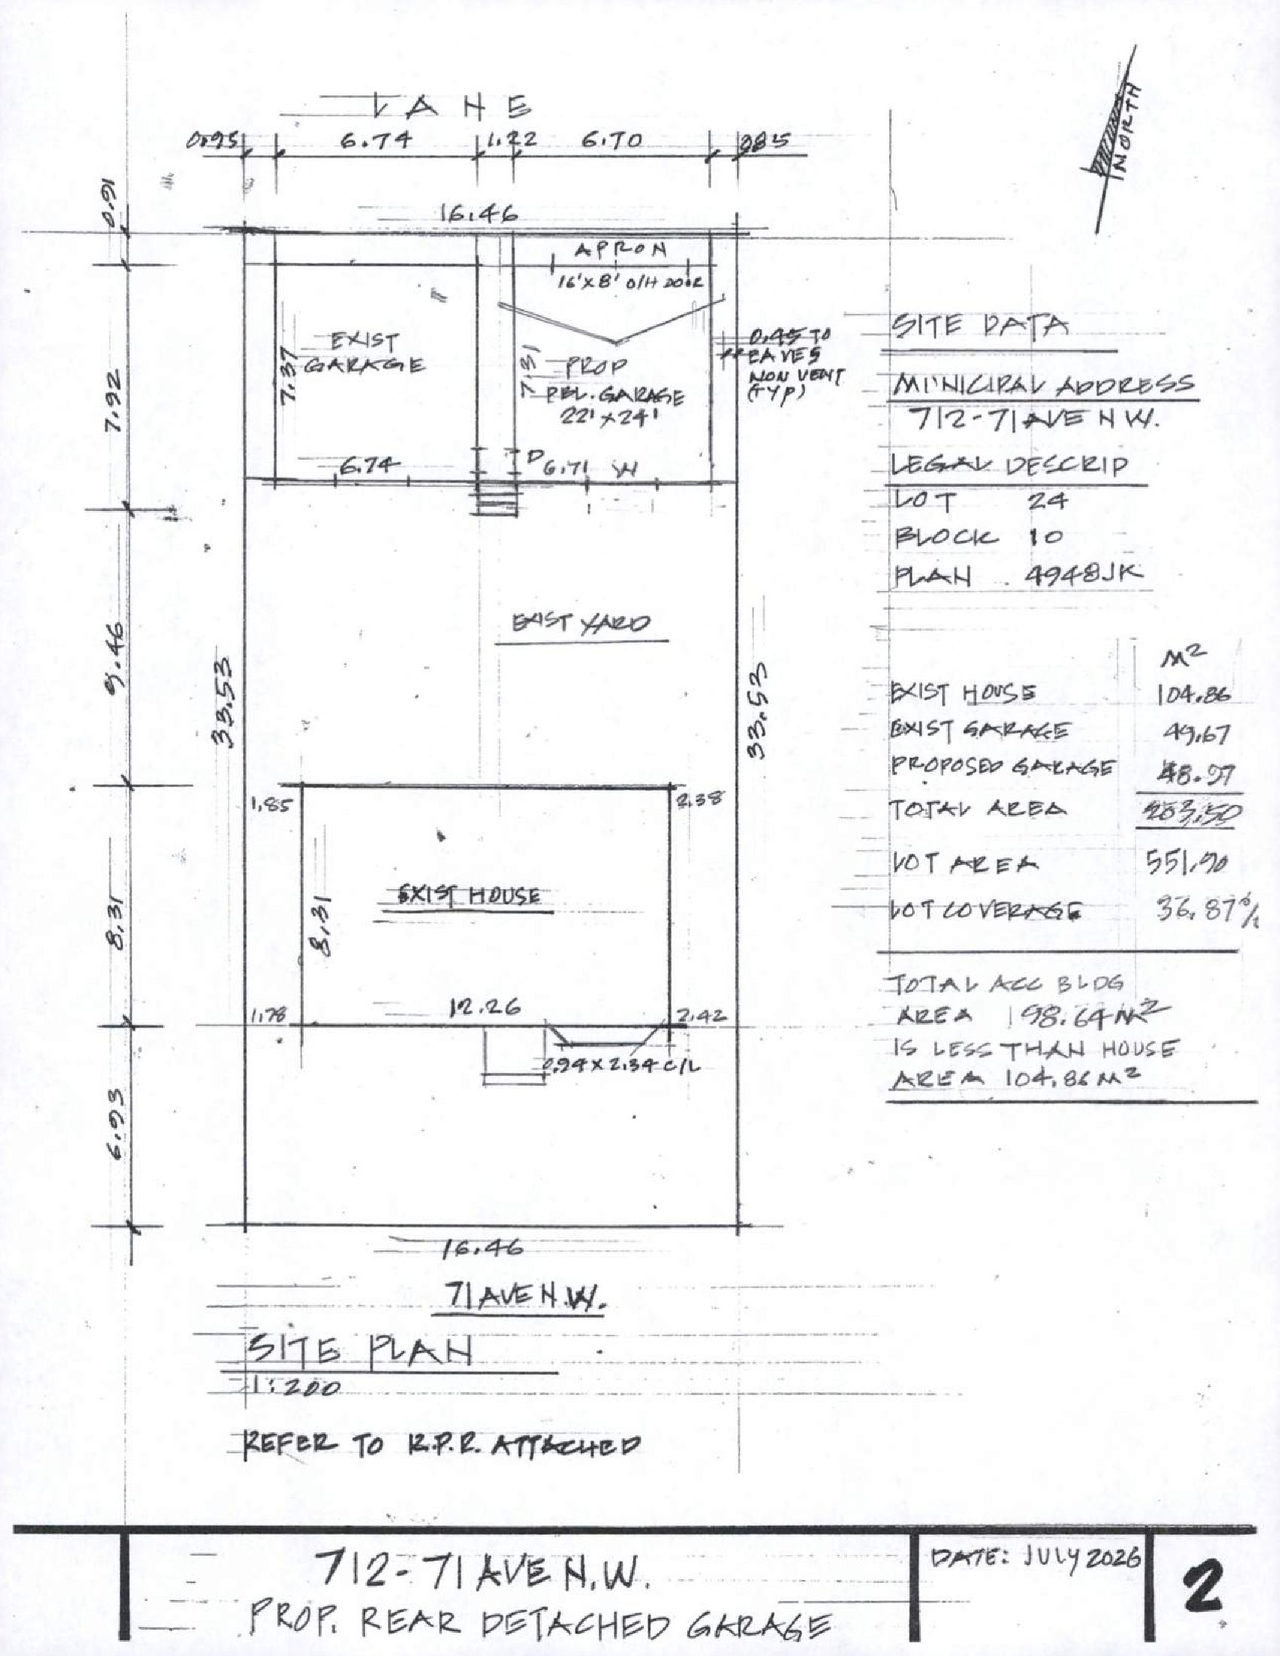 LANE
0.95 6.74 1.22 6.70 0.85
16.46
0.91
APRON
16'X8' O/H DOOR
NORTH
EXIST
GARAGE
7.37
7.31
PROP
REL. GARAGE
22'X24'
0.45 TO
EAVES
NON VENT
(TYP)
7.92
6.74
D 6.71 W
EXIST YARD
9.46
33.53
33.53
1.85
2.38
EXIST HOUSE
8.31
8.31
1.78
12.26
2.42
0.94 X 2.34 C/L
6.93
16.46
71 AVE N.W.
SITE PLAN
1:200
REFER TO R.P.R. ATTACHED
SITE DATA
MUNICIPAL ADDRESS
712-71 AVE N.W.
LEGAL DESCRIP
LOT 24
BLOCK 10
PLAN 4948JK
M²
EXIST HOUSE 104.86
EXIST GARAGE 49.67
PROPOSED GARAGE 48.97
TOTAL AREA 203.50
LOT AREA 551.90
LOT COVERAGE 36.87%
TOTAL ACC BLDG
AREA 98.64 M²
IS LESS THAN HOUSE
AREA 104.86 M²
712-71 AVE N.W.
PROP. REAR DETACHED GARAGE
DATE: JULY 2026
2